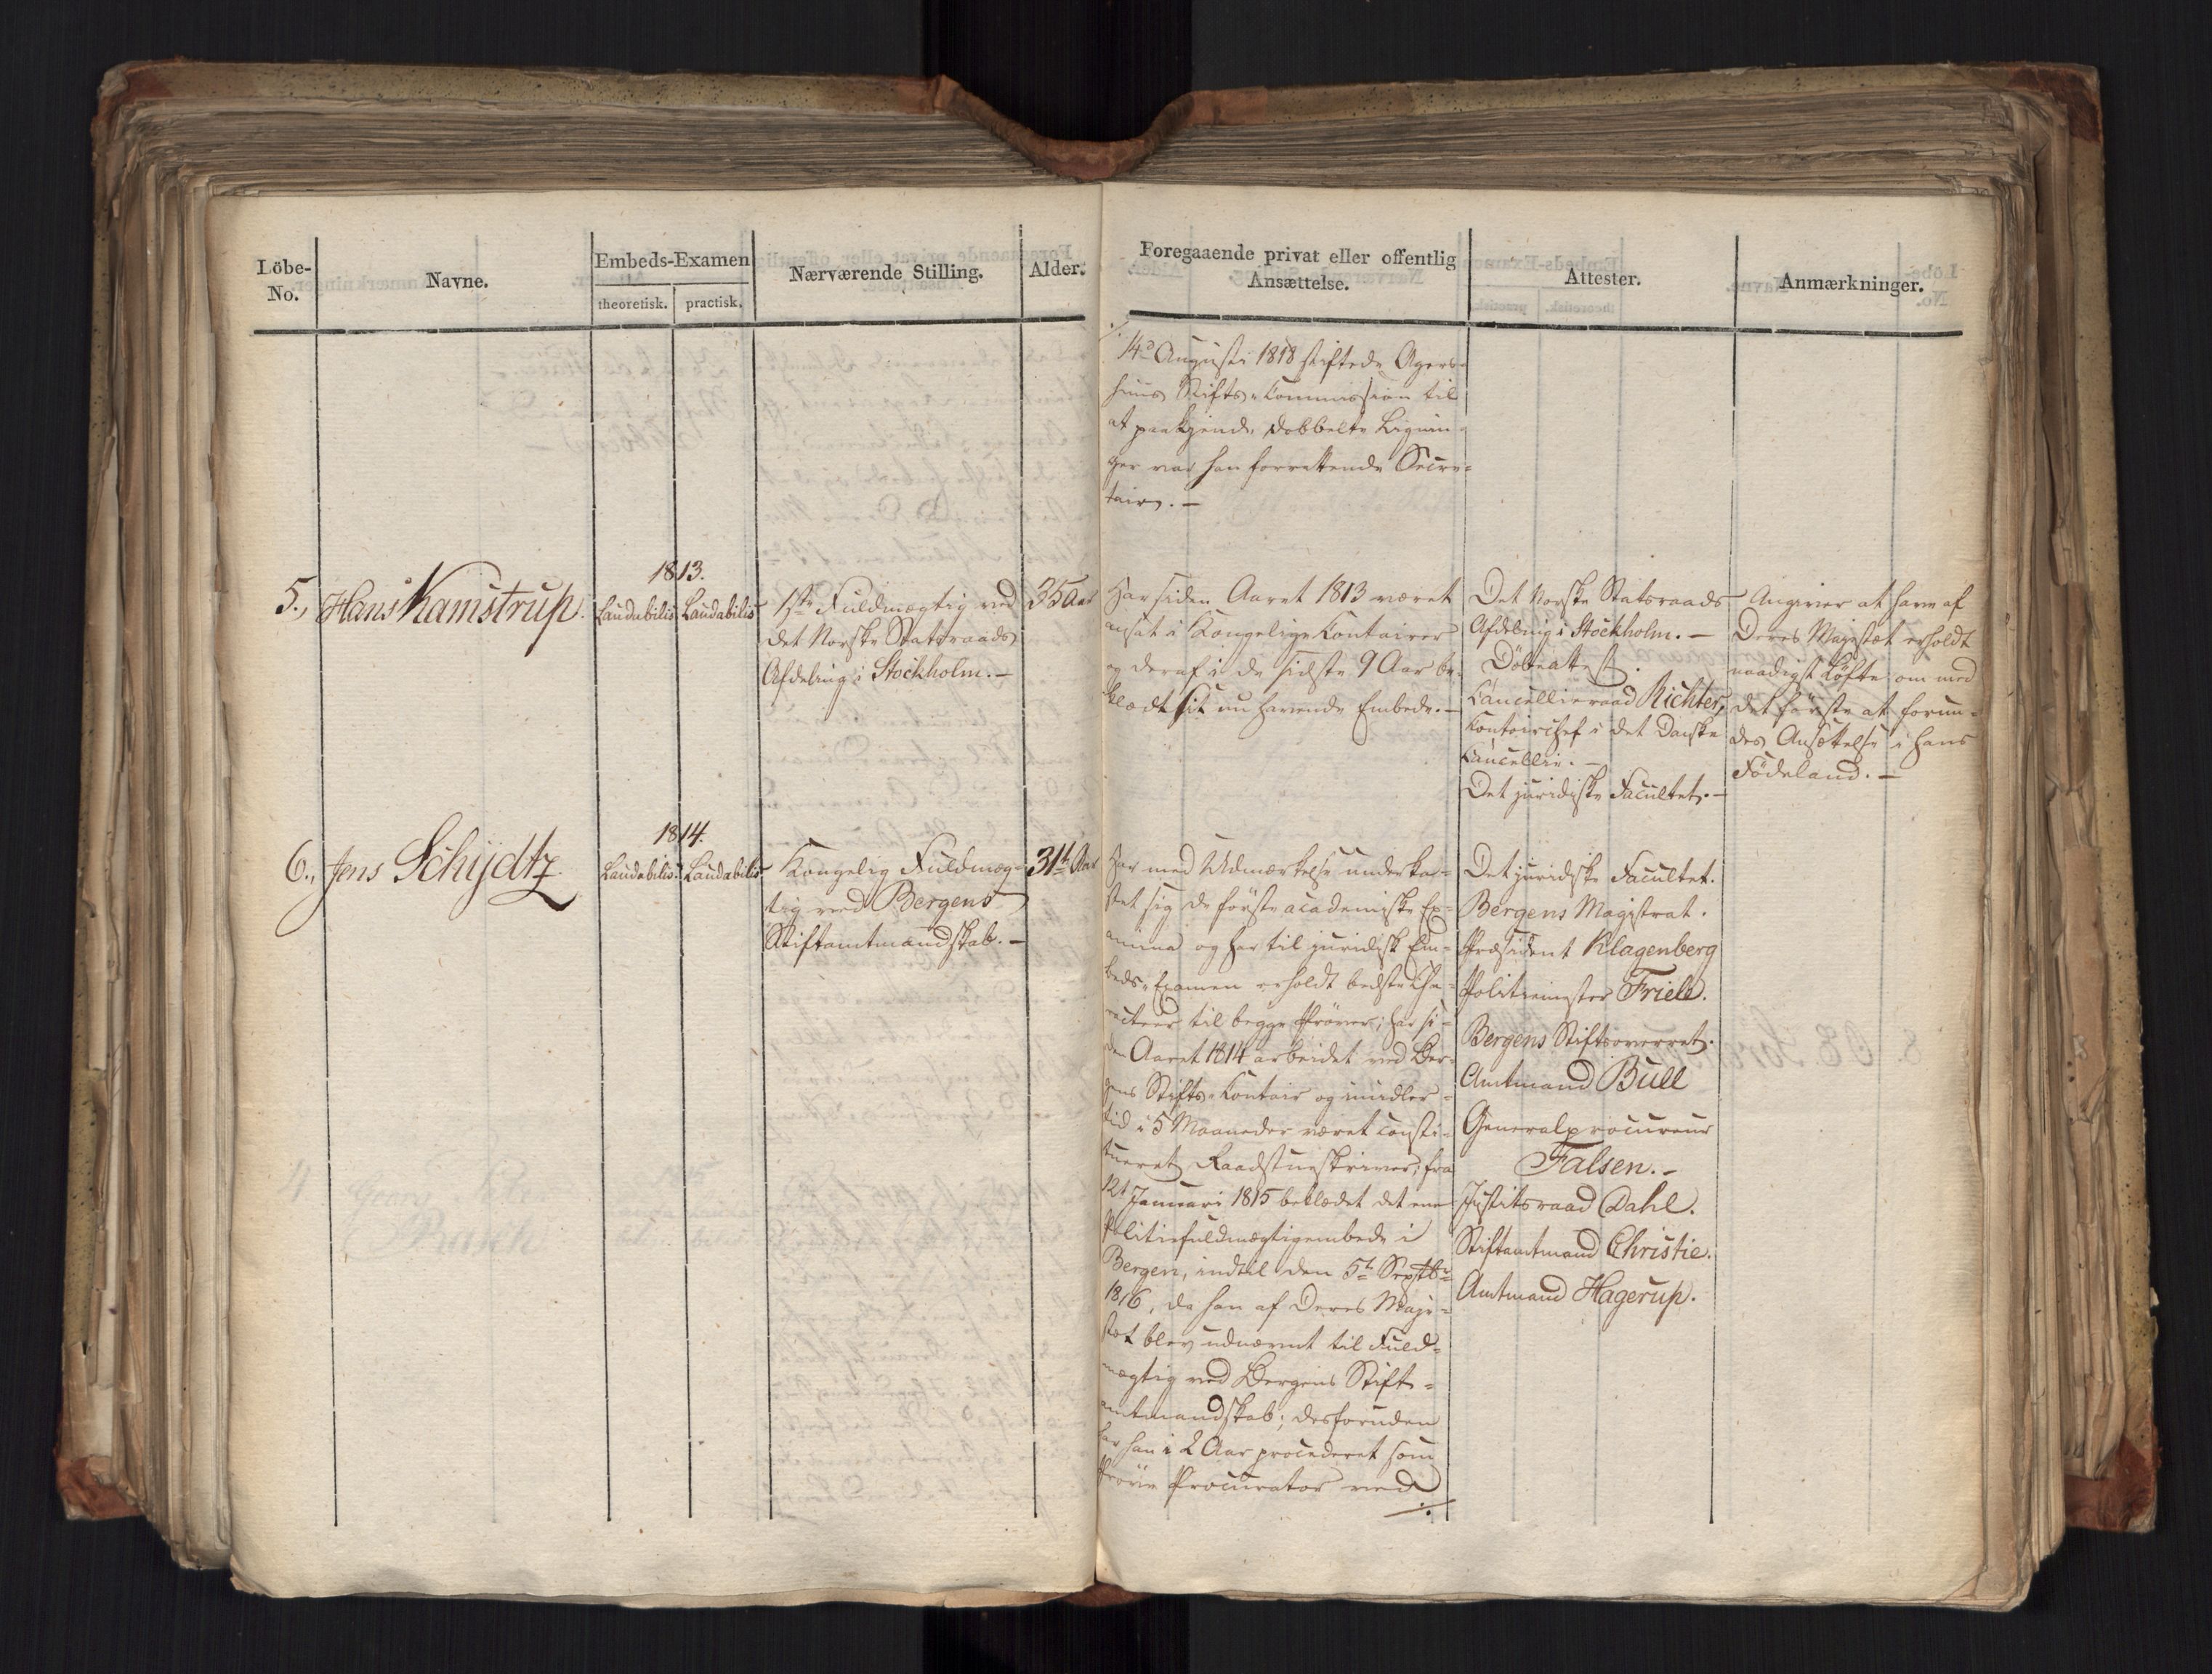 Löbe-
No.
Navne.
Embeds-Examen
theoretisk.
practisk.
Nærværende Stilling.
Alder.
Foregaaende privat eller offentlig
Ansættelse.
Attester.
Anmærkninger.
14d Augusti 1818 stiftede Agers-
huus Stifts-Commission til
at paakjende dobbelte Lignin-
ger var han forrettende Secre-
tair. -
5., Hans Kamstrup.
1813.
Laudabilis Laudabilis
1ste Fuldmægtig ved
det Norske Statsraads
Afdeling i Stockholm. -
35 Aar
Har siden Aaret 1813 været
ansat i Kongelige Contoirer
og deraf i de sidste 9 Aar be-
klædt sit nu havende Embede. -
Det Norske Statsraads
Afdeling i Stockholm. -
Döbeattest.
Cancellieraad Richter,
Contoirchef i det Danske
Cancellie. -
Det juridiske Facultet. -
Angiver at have af
Deres Majestæt erholdt
naadigst Löfte om med
det förste at forun-
des Ansættelse i hans
Födeland. -
6., Jens Schydtz
1814.
Laudabilis. Laudabilis
Kongelig Fuldmæg-
tig ved Bergens
Stiftamtmandskab. -
31te Aar
Har med Udmærkelse underka-
stet sig de förste academiske Ex-
amina og har til juridisk Em-
beds-Examen erholdt bedste Cha-
racteer til begge Pröver; har si-
den Aaret 1814 arbeidet ved Ber-
gens Stifts-Contoir og imidler-
tid i 5 Maaneder været consti-
tueret Raadstueskriver; fra
12t Januari 1815 beklædet det ene
Politiefuldmægtigembede i
Bergen, indtil den 5te Septbr
1816, da han af Deres Maje-
stæt blev udnævnt til Fuld-
mægtig ved Bergens Stift-
amtmandskab; desforuden
har han i 2 Aar procederet som
Pröve Procurator ved
./.
Det juridiske Facultet.
Bergens Magistrat.
Præsident Klagenberg
Politiemester Friele.
Bergens Stiftsoverret.
Amtmand Bull
Generalprocureur
Falsen. -
Justitsraad Dahl.
Stiftamtmand Christie.
Amtmand Hagerup.